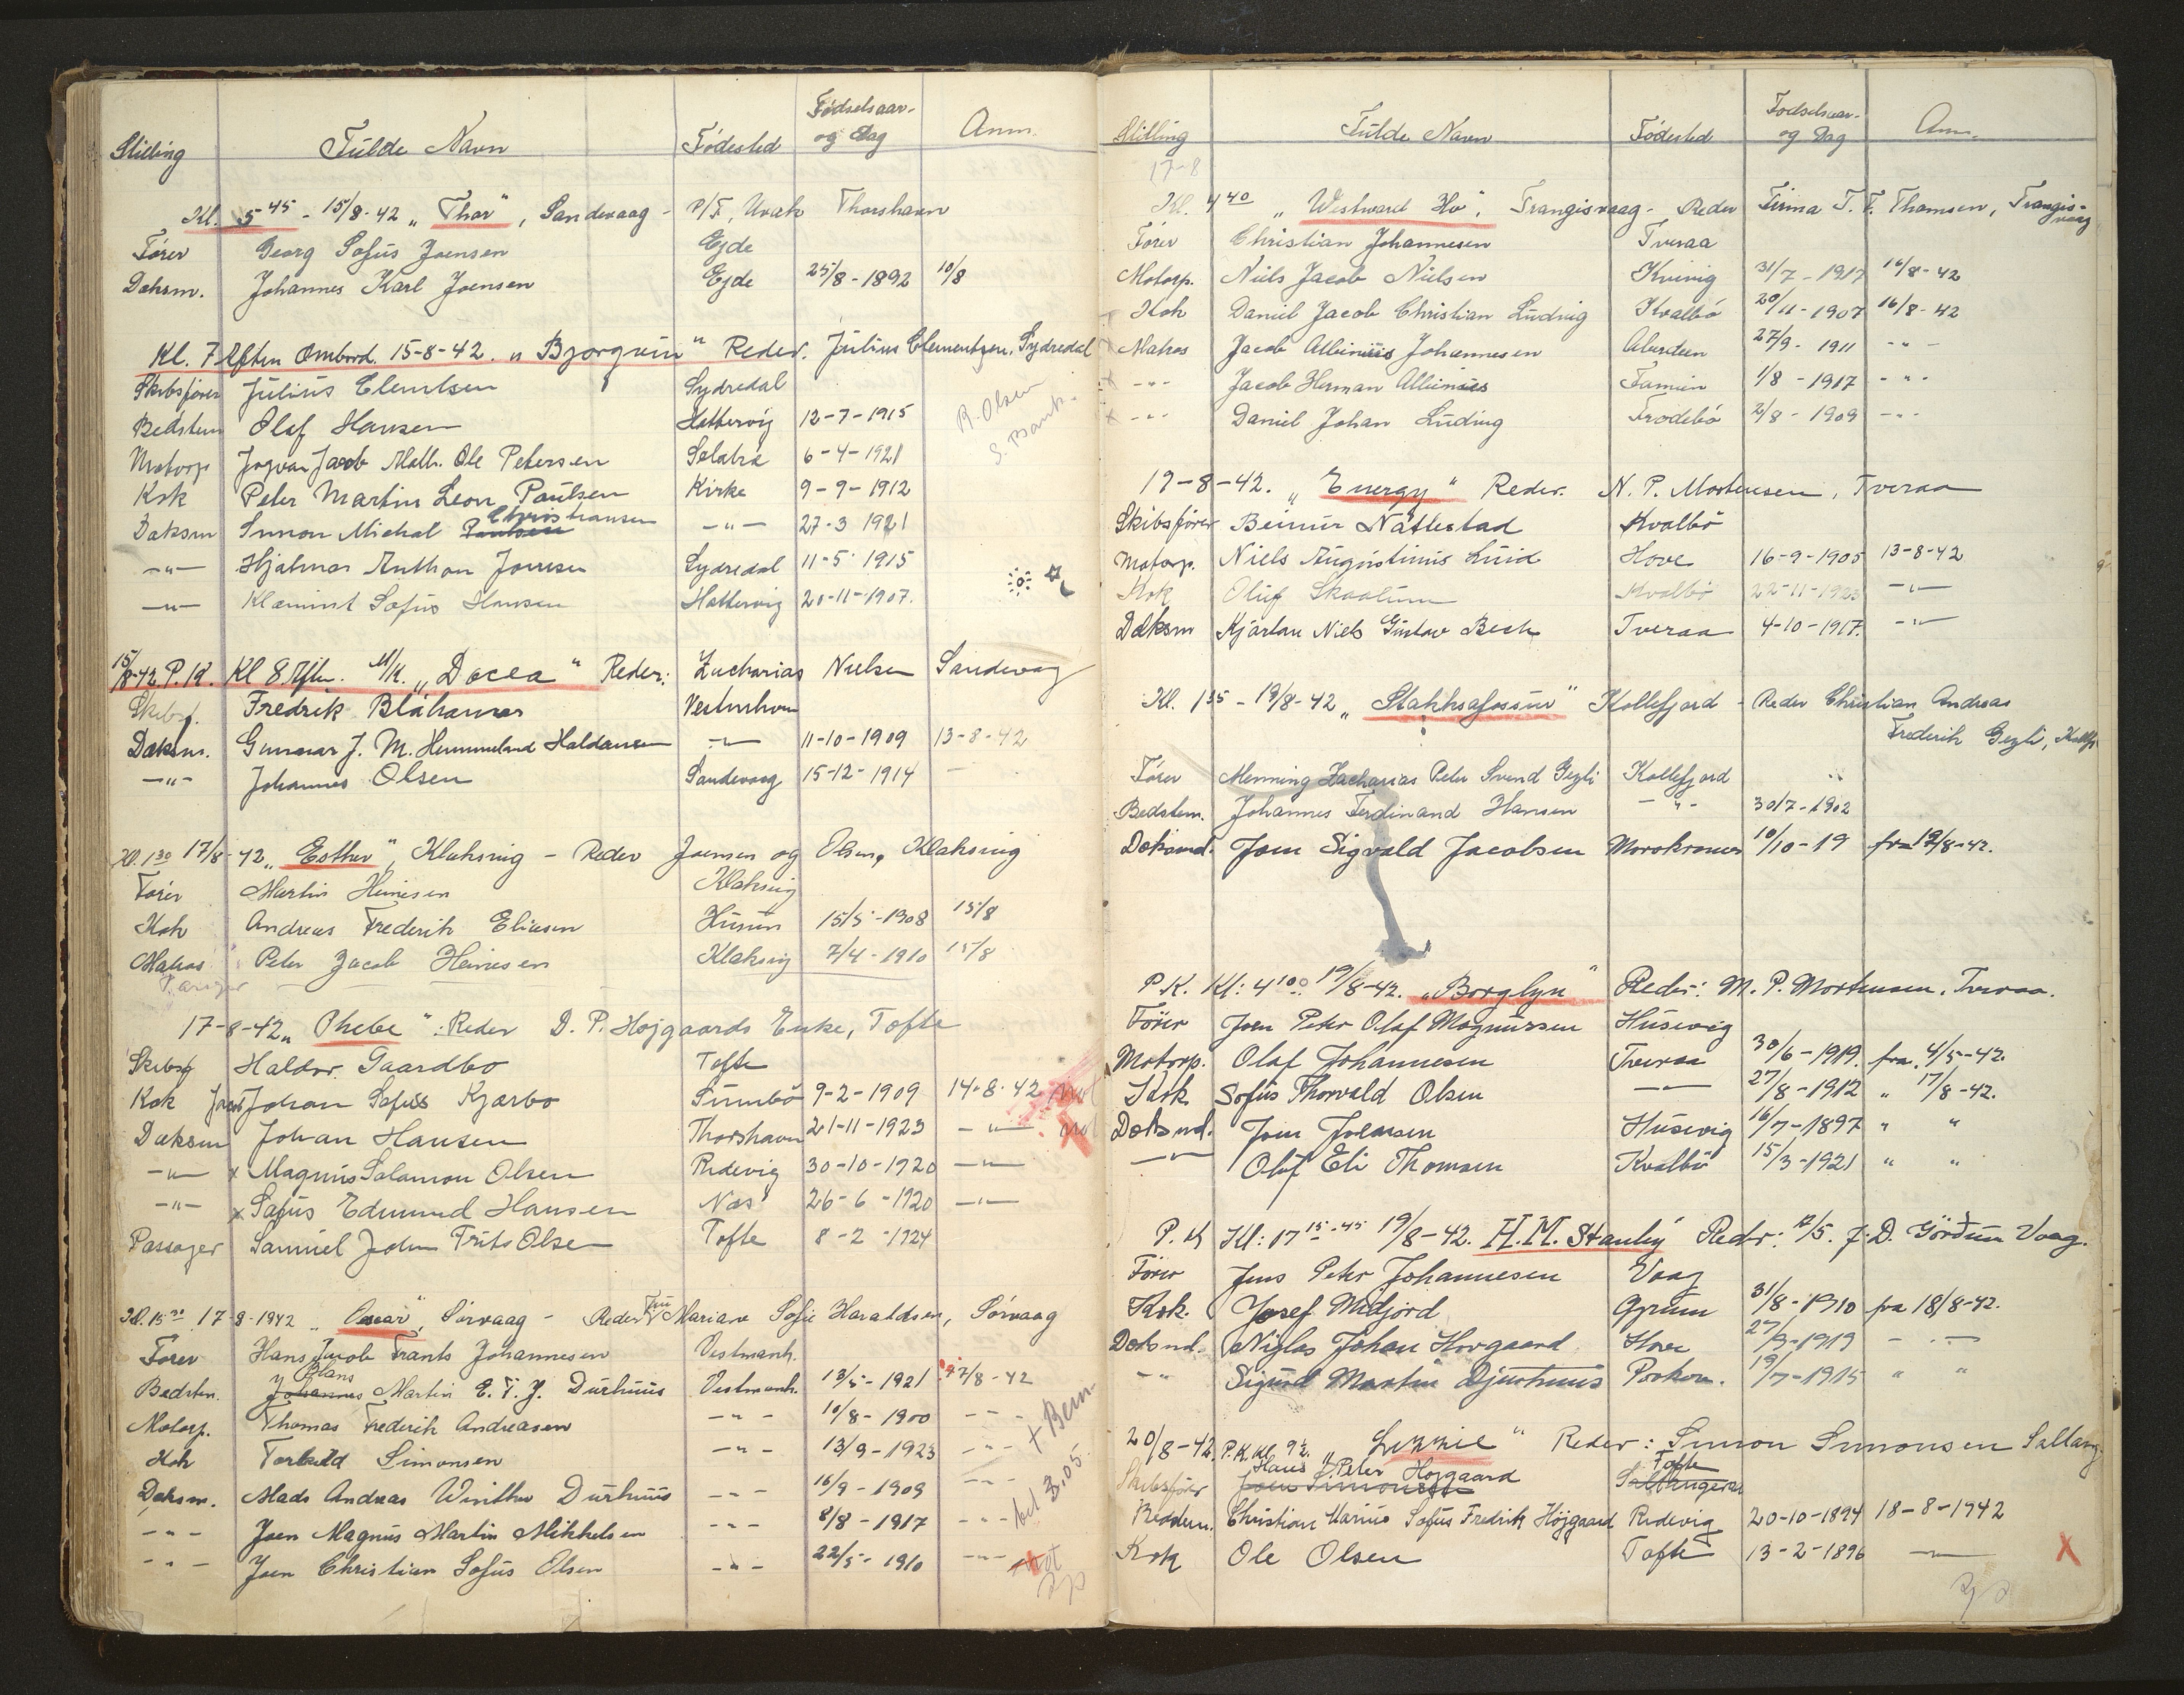 Stilling Fulde Navn Fødested Fødselsaar- og Dag Anm.
Kl. 5 45 - 15/8-42 „Thor", Sandevaag - P/F, Uvak Thorshavn
Fører Georg Sofus Joensen Ejde
Dæksm. Johannes Karl Joensen Ejde 25/8-1892 10/8
Kl. 7 Aften Ombord. 15-8-42. „Bjorgvin" Reder. Julius Clementsen, Sydredal
Skibsfører Julius Clemtsen Sydredal
R. Olsen
Bedstem Olaf Hansen Hattervig 12-7-1915
S. Bank.
Motorp Jogvan Jacob Math. Ole Petersen Selatra 6-4-1921
Kok Peter Martin Leon Paulsen Kirke 9-9-1912
Christiansen
Daksm Simon Michal Paulsen -"- 27-3 1921
-"- Hjalmar Anthon Joensen Sydredal 11-5-1915
-"- Klæmint Sofus Hansen Hattervig 20-11-1907.
15/8-42. P.K. Kl 8 Aften. M/K. „Docea" Reder: Zacharias Nielsen Sandevag
Skibsf. Fredrik Bláhamar Vestmhavn
Dæksm. Gunnar J. M. Hummeland Haldansen -"- 11-10-1909 13-8-42
-"- Johannes Olsen Sandevaag 15-12-1914 -
Kl. 1 30 17/8-42 „Esther", Klaksvig - Reder Joensen og Olsen, Klaksvig
Fører Martin Heinesen Klaksvig
Kok Andreas Frederik Eliasen Husum 15/5-1908 15/8
Matros Peter Jacob Heinesen Klaksvig 7/4-1910 15/8
17-8-42 „Phebe": Reder D. P. Højgaards Enke, Tofte
Skibsf Haldor Gaardbo Tofte
Kok Jacob Johan Sofus Kjærbo Sumbö 9-2-1909 14-8-42 not
Dæksm Johan Hansen Thorshavn 21-11-1923 -"- not
-"- x Magnus Salamon Olsen Ridevig 30-10-1920 -"-
-"- x Sofus Edmund Hansen Næs 26-6-1920 -"-
Passager Samuel John Frits Olsen Tofte 8-2-1924
Kl. 15 30 17-8-1942 „Oscar", Sørvaag - Reder Fru Mariane Sofie Haraldsen, Sørvaag
Fører Hans Jacob Frants Johannesen Vestmanh.
Hans
Bedstm. Johannes Martin E. F. J. Durhuus Vestmanh. 13/5-1921 17/8-42
Motorp. Thomas Frederik Andreasen -"- 10/8-1900 -"-
+ Bem.
Kok Torkild Simonsen -"- 13/9-1923 -"-
3.05.
Dæksm. Mads Andreas Winther Durhuus -"- 16/9-1909 -"-
-"- Joen Magnus Martin Mikkelsen -"- 8/8-1917 -"-
-"- Joen Christian Sofus Olsen -"- 22/5-1910 -"- not
Stilling Fulde Navn Fødested Fødselsaar- og Dag Anm.
17-8
Kl. 4 40 „Westward Ho", Trangisvaag - Reder Firma T. F. Thomsen, Trangisvaag
Fører Christian Johannesen Tveraa
Motorp. Niels Jacob Nielsen Kvivig 31/7-1917 16/8-42
Kok Daniel Jacob Christian Ludvig Kvalbö 20/11-1907 16/8-42
Matros Jacob Albinius Johannesen Aberdeen 27/9-1911 -"-
x -"- Jacob Herman Albinius Famien 1/8-1917 -"-
x -"- Daniel Johan Ludvig Frodebö 2/8-1909 -"-
17-8-42. „Energy" Reder. N. P. Mortensen, Tveraa
Skibsfører Beinur Nattestad Kvalbö
Motorp. Niels Augustinus Luid Hove 16-9-1905 13-8-42
Kok Oluf Skaalum Kvalbö 22-11-1923 -"-
Dæksm Kjartan Niels Gustav Bech Tveraa 4-10-1917. -"-
Kl. 1 35 - 19/8-42 „Stakksafossur" Kollefjord - Reder Christian Andreas
Frederik Gezli, Kollfj
Fører Menning Zacharias Peter Svend Gezli Kollefjord
Bedstem. Johannes Ferdinand Hansen -"- 30/7-1902
Dæksmd. Joen Sigvald Jacobsen Morskranes 10/10-19 fra 19/8-42.
P.K. Kl: 4 10. 19/8-42. „Borglyn" Reder: M. P. Mortensen. Tveraa.
Fører Joen Peter Olaf Magnussen Husevig
Motorp. Olaf Johannesen Tveraa 30/6-1919. fra. 4/5-42.
Kok Sofus Thorvald Olsen -"- 27/8-1912 " 17/8-42.
Dæksmd. Joen Joensen Husevig 16/7-1897 " "
-"- Olaf Eli Thomsen Kvalbö 15/3-1921 " "
P.K Kl: 17 15-45 19/8-42. H.M. Stanley" Reder: J. D. Görðum Vaag.
Fører Jens Peter Johannesen Vaag
Kok. Josef Midjord Gjrum 31/8-1910 fra 18/8-42.
Dæksmd. Niglas Johan Hovgaard Hove 27/9-1919 - " -
-"- Sigurd Martin Djurhuus Porkere. 19/7-1915 " "
20/8-42. P.K. Kl. 9½ „Lizzie" Reder: Simon Simonsen Saltang.
Hans Peter Højgaard Tofte
Skibsfører Joen Simonsen Saltangeraa
Bedstem. Christian Marius Sofus Fredrik Højgaard Ridevig 20-10-1894 18-8-1942
Kok Ole Olsen Tofte 13-2-1896 -"- X